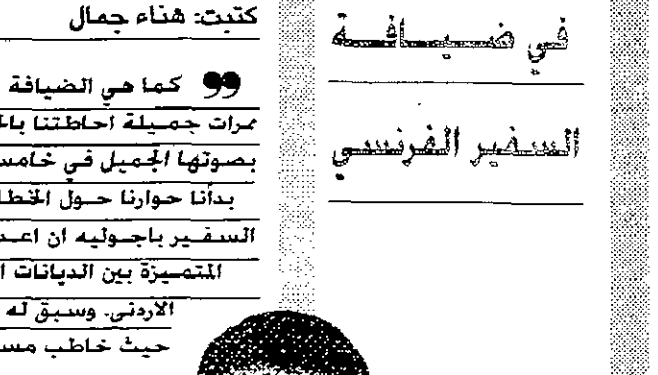 في ضيافة
السفير الفرنسي
كتبت: هناء جمال
كما هي الضيافة
ممرات جميلة احاطتنا
بصوتها الجميل في
بدأنا حوارنا حول
السفير باجوليه ان
المتميزة بين الديانات
الاردني. وسبق له
حيث خاطب